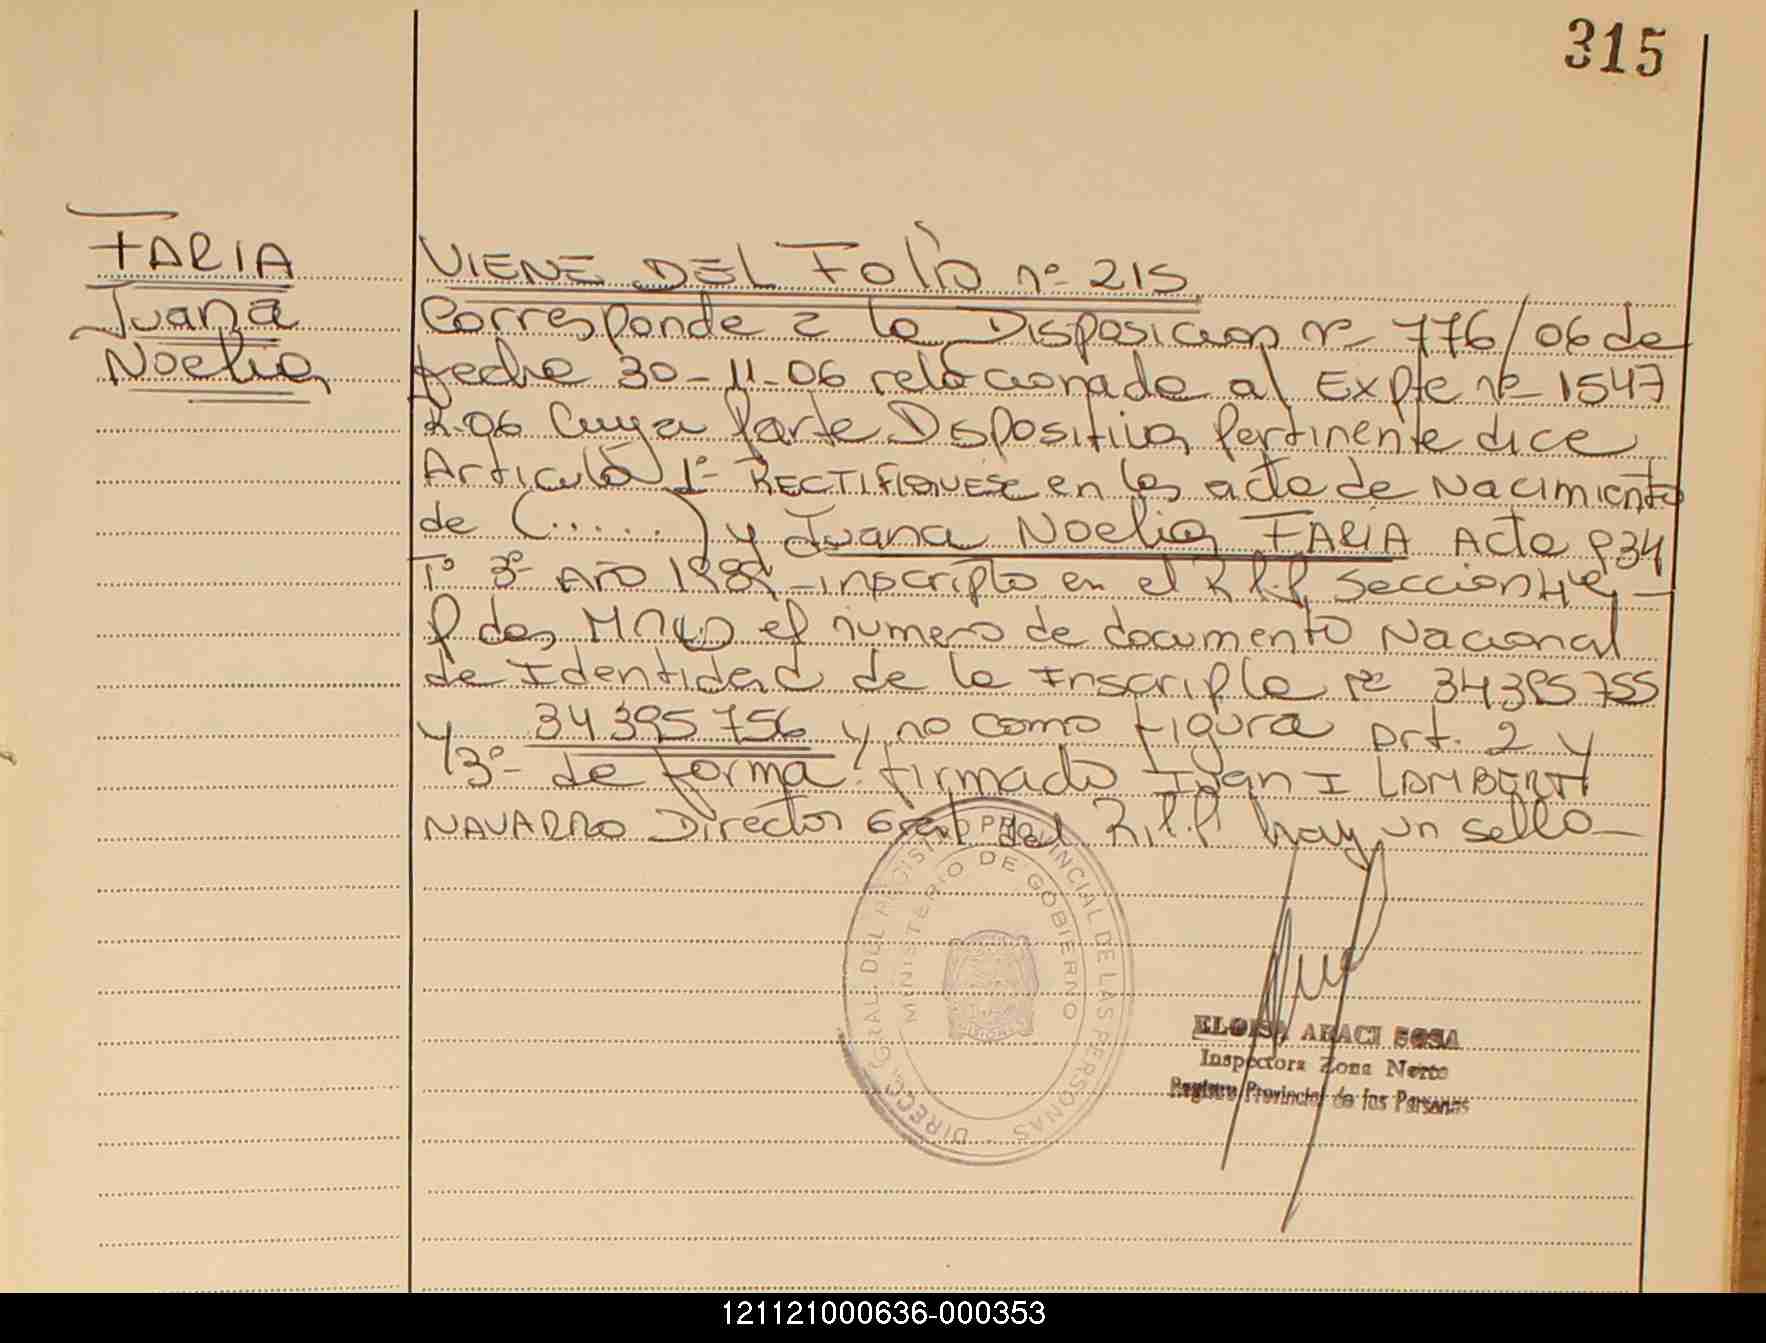 315
FARIA
Juana
Noelia
VIENE DEL Folio nº 215
Corresponde a la Disposicion nº 776/06 de
fecha 30-11-06 relacionada al Expte nº 1547
R-06 Cuya Parte Dispositiva Pertinente dice
Articulo 1º RECTIFIQUESE en las acta de Nacimiento
de (......) y Juana Noelia FARIA Acta 934
Tº 3º AÑO 1989 - inscripto en el R.P.P. Seccion 4ª -
el numero de documento Nacional
de Identidad de la Inscripta nº 34395755
y 34395756 y no como figura Art. 2 y
3º de forma. firmado Ivan I LAMBERTI
NAVARRO Director Gral del R.P.P. hay un sello -
DIRECC. GRAL. DEL REGISTRO PROVINCIAL DE LAS PERSONAS -
MINISTERIO DE GOBIERNO
ELOISA ARACI SOSA
Inspectora Zona Norte
Registro Provincial de las Personas
121121000636-000353